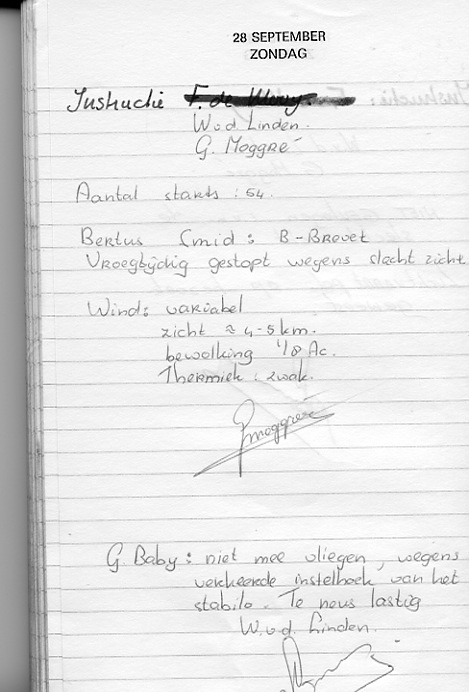 28 SEPTEMBER
ZONDAG
Instructie F. de
W.v.d Linden.
G. Moggré
Aantal starts : 54.
Bertus Smid : B - Brevet
Vroegtijdig gestopt wegens slecht zicht
Wind: variabel
zicht ≈ 4-5 km.
bewolking 1/8 Ac.
Thermiek : zwak.
Gmoggré
G. Baby : niet mee vliegen, wegens
verkeerde instelhoek van het
stabilo. Te neus lastig
W.v.d. Linden.